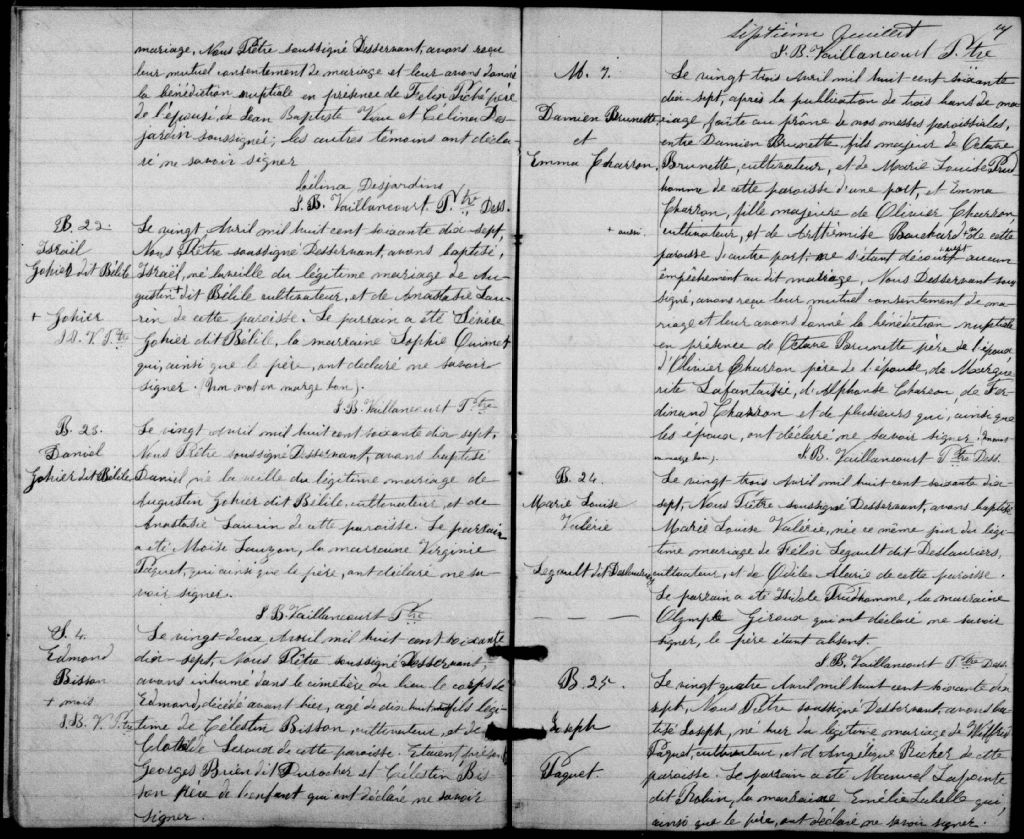 mariage, Nous Prêtre soussigné Desservant, avons reçu
leur mutuel consentement de mariage et leur avons donné
la bénédiction nuptiale en présence de Felix Piché père
de l'épouse, de Jean Baptiste Viau et Célina Des-
jardin soussignée; les autres témoins ont décla-
ré ne savoir signer
Célina Desjardins
J. B. Vaillancourt Ptre Dess.
B. 22.
Israël
Gohier dit Bélile
+ Gohier
J. B. V. Ptre
Le vingt Avril mil huit cent soixante dix sept
Nous Prêtre soussigné Desservant, avons baptisé,
Israël, né la veille du légitime mariage de Au-
gustin + dit Bélile cultivateur, et de Anastasie Lau-
rin de cette paroisse. Le parrain a été Sévère
Gohier dit Bélile, la marraine Sophie Ouimet
qui, ainsi que le père, ont déclaré ne savoir
signer. (Un mot en marge bon).
J. B. Vaillancourt Ptre
B. 23.
Daniel
Gohier dit Bélile
Le vingt Avril mil huit cent soixante dix sept,
Nous Prêtre soussigné Desservant, avons baptisé
Daniel né la veille du légitime mariage de
Augustin Gohier dit Bélile, cultivateur, et de
Anastasie Laurin de cette paroisse. Le parrain
a été Moïse Lauzon, la marraine Virginie
Paquet, qui ainsi que le père, ont déclaré ne sa-
voir signer.
J. B. Vaillancourt Ptre
S. 4.
Edmond
Bisson
+ mois
J. B. V. Ptre
Le vingt-deux Avril mil huit cent soixante
dix-sept, Nous Prêtre soussigné Desservant,
avons inhumé dans le cimetière du lieu le corps de
Edmond, décédé avant hier, agé de dix huit + fils légi-
time de Célestin Bisson, cultivateur, et de
Clothilde Leroux de cette paroisse. Etaient présents
Georges Brien dit Durocher et Célestin Bis-
son père de l'enfant qui ont déclaré ne savoir
signer.
Septième feuillet
J. B. Vaillancourt Ptre
M. 7.
Damien Brunette
et
Emma Charron.
+ aussi
Le vingt trois Avril mil huit cent soixante
dix-sept, après la publication de trois bans de ma-
riage faite au prône de nos messes paroissiales,
entre Damien Brunette, fils majeur de Octave
Brunette, cultivateur, et de Marie Louise Prud
homme de cette paroisse d'une part, et Emma
Charron, fille majeure de Olivier Charron,
cultivateur, et de Arthémise Bouchard + de cette
paroisse d'autre part, ne s'étant découvert aucun
empêchement au dit mariage, Nous Desservant sous
signé, avons reçu leur mutuel consentement de ma-
riage et leur avons donné la bénédiction nuptiale
en présence de Octave Brunette père de l'époux
d'Olivier Charron père de l'épouse, de Margue-
rite Lafantaisie, d'Alphonse Charron, de Fer-
dinand Charron et de plusieurs qui, ainsi que
les époux, ont déclaré ne savoir signer. (un mot
en marge bon).
J. B. Vaillancourt Ptre Dess.
B. 24.
Marie Louise
Valérie
Legault dit Deslauriers
Le vingt trois Avril mil huit-cent soixante dix-
sept, Nous Prêtre soussigné Desservant, avons baptisé
Marie Louise Valérie, née ce même jour du légi-
time mariage de Félisi Legault dit Deslauriers,
cultivateur, et de Odile Alarie de cette paroisse.
Le parrain a été Prudhomme, la marraine
Olympe Giroux qui ont déclaré ne savoir
signer, le père étant absent.
J. B. Vaillancourt Ptre Dess.
B. 25.
Joseph
Paquet.
Le vingt quatre Avril mil huit cent soixante dix
sept, Nous Prêtre soussigné Desservant, avons bap
tisé Joseph, né hier du légitime mariage de Wilfred
Paquet, cultivateur, et d'Angélique Richer de cette
paroisse. Le parrain a été Manuel Lapointe
dit Robin, la marraine Emélie Labelle qui,
ainsi que le père, ont déclaré ne savoir signer.